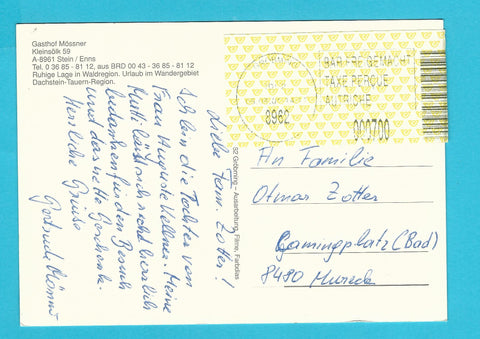 Gasthof Mössner
Kleinsölk 59
A-8961 Stein / Enns
Tel. 0 36 85 - 81 12, aus BRD 00 43 - 36 85 - 81 12
Ruhige Lage in Waldregion. Urlaub im Wandergebiet
Dachstein-Tauern-Region.
Liebe Fam. Zotter!
die Tochter von
Frau Auguste Kellner. Meine
Mutti läßt sich recht herzlich
bedanken für den Besuch
und das nette Geschenk.
Herzliche Grüße
Gertrude
BAR FREIGEMACHT
TAXE PERCUE
AUTRICHE
8962
000700
An Familie
Otmar Zotter
Campingplatz (Bad)
8480 Mureck